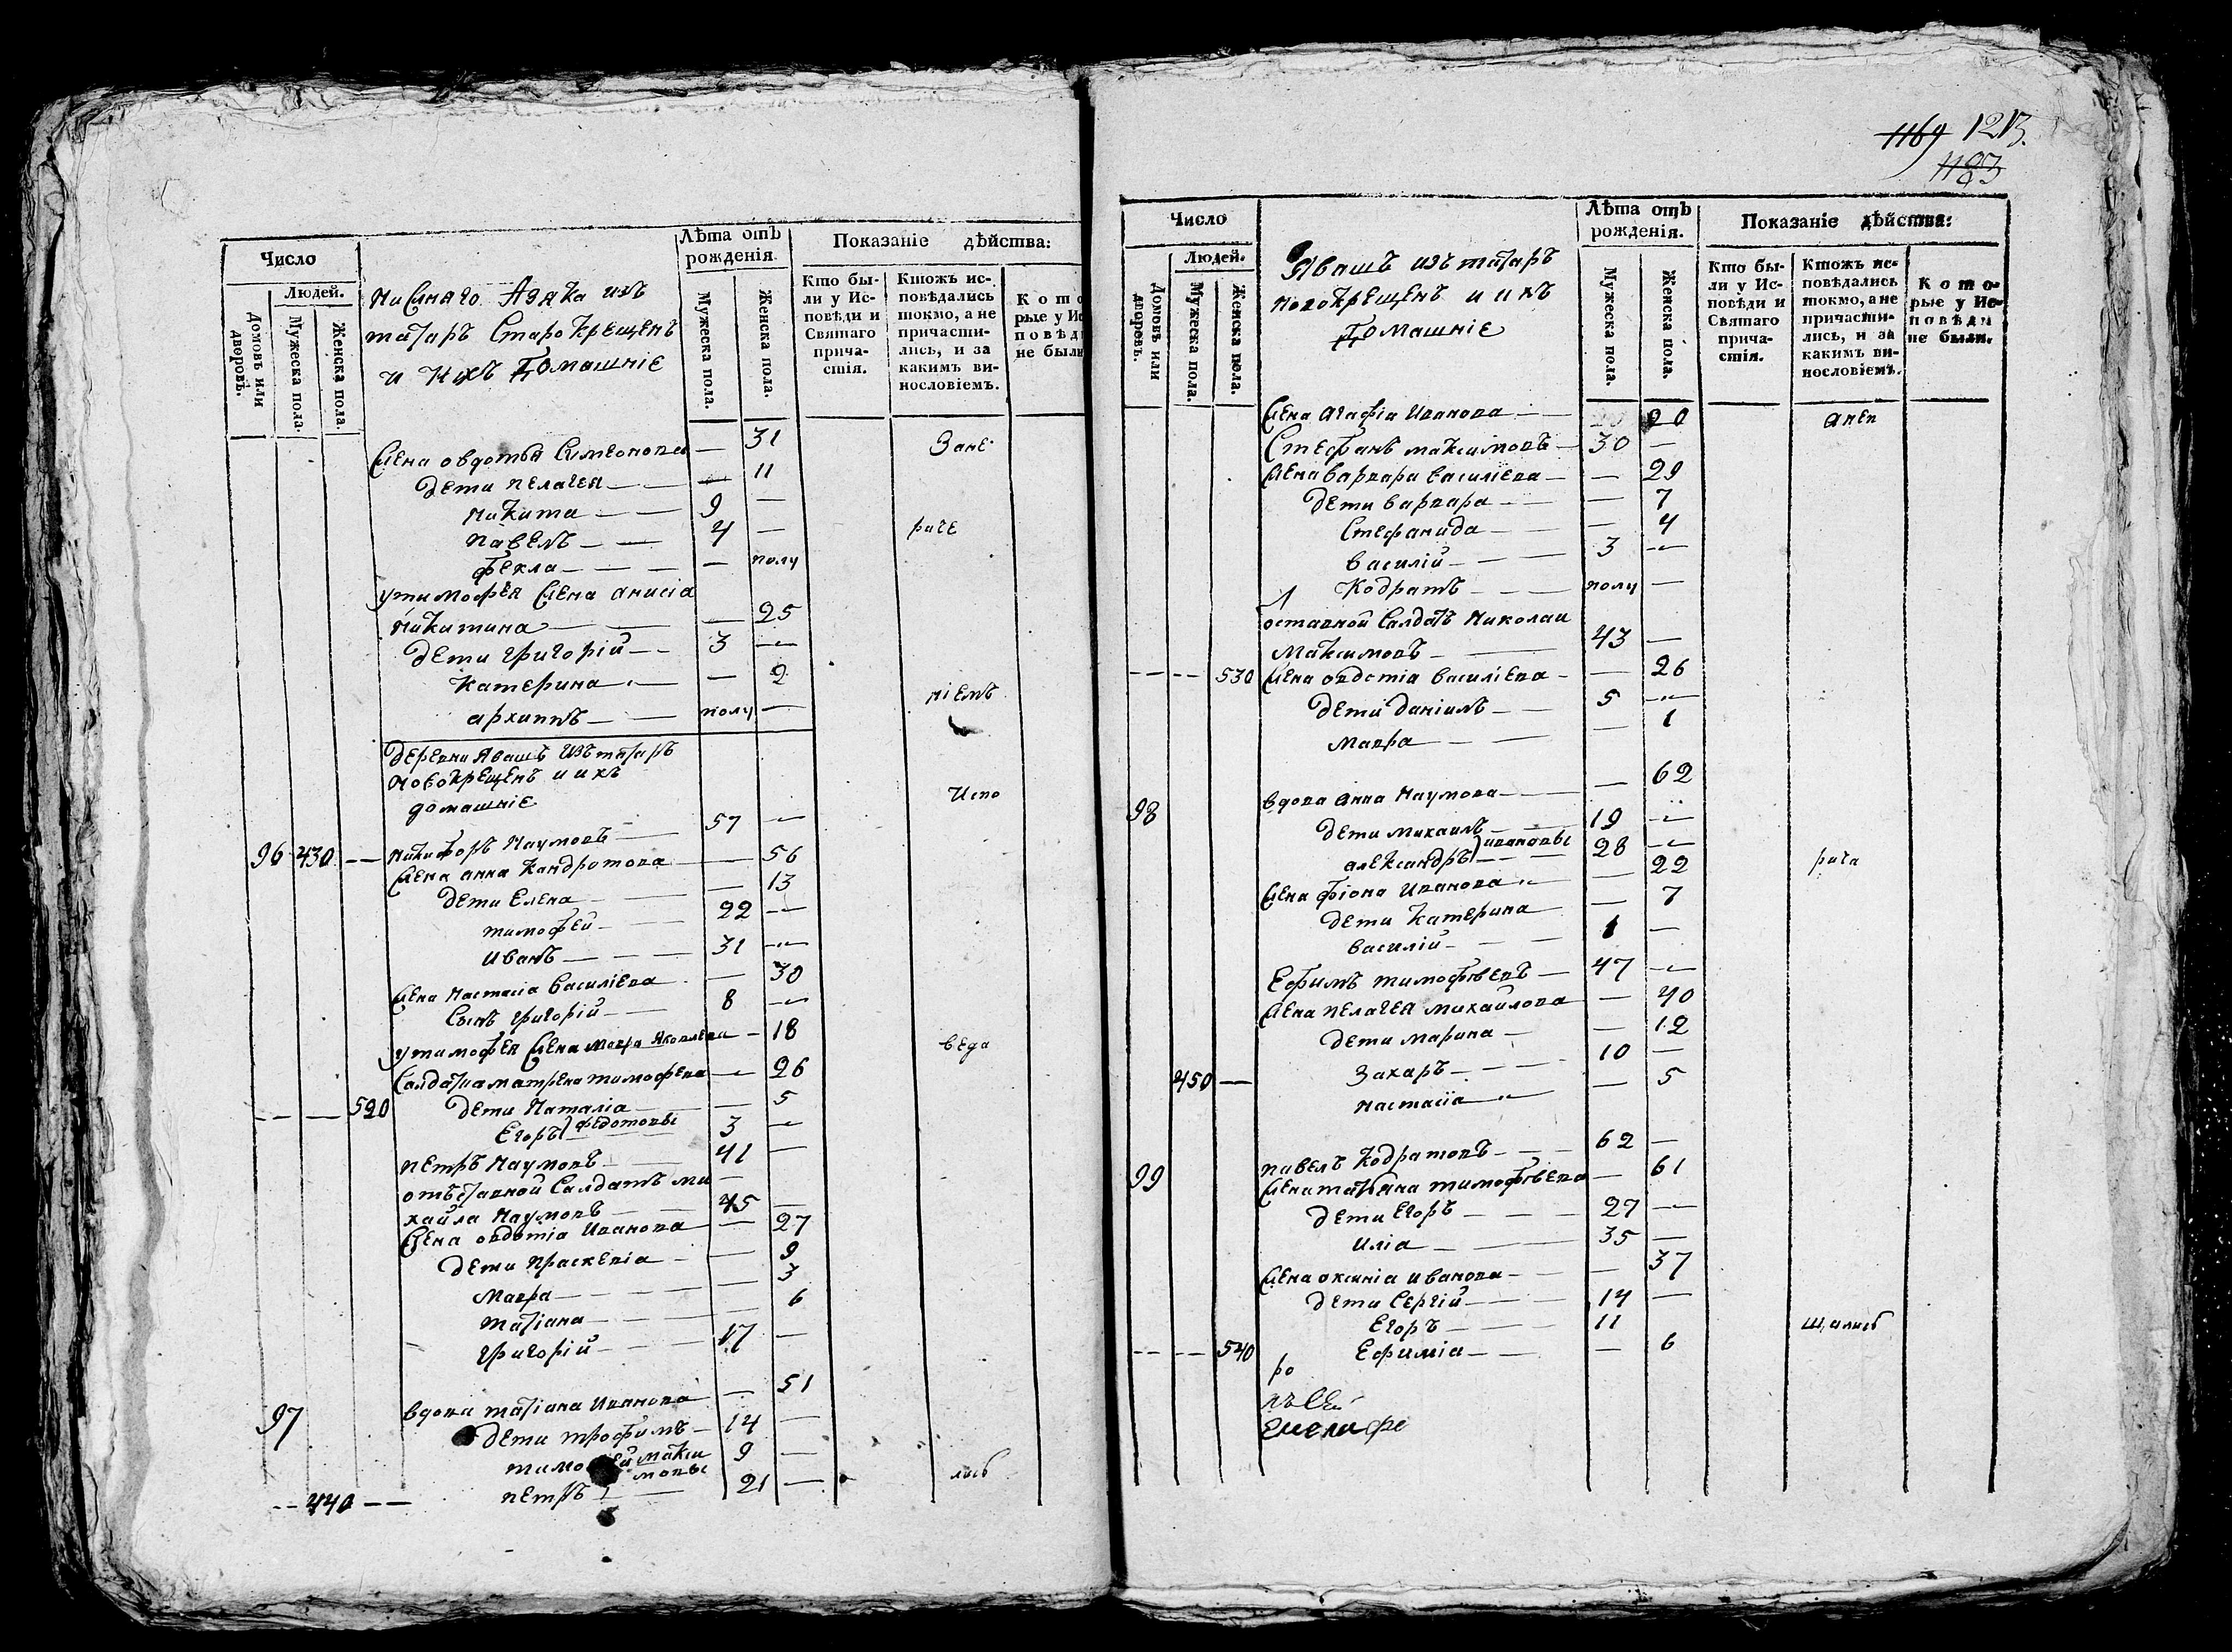 Число
Людей.
Домовъ или дворовъ.
Мужеска пола.
Женска пола.
татаръ Старокрещенъ
и ихъ Домашніе
Лѣта отъ рожденія.
Мужеска пола.
Женска пола.
Показаніе дѣйства:
Кто бы-
ли у Ис-
повѣди и
Святаго
прича-
стія.
Ктожъ ис-
повѣдались
токмо, а не
причасти-
лись, и за
какимъ ви-
нословіемъ.
Кото
рые у Ис
повѣд
не были
жена овдотья Симеонова — 31 Зане
дети пелагея — 11
Никита — 9 —
павелъ — 4 — раче
Фекла — полу
утимофея жена анисіа
Никитина — 25
дети григорій — 3 —
Катерина — 2
архипъ — полу — ніемъ
деревни Аваш изъ татаръ
новокрещенъ и ихъ
домашніе Испо
96 430 — Никифоръ Наумовъ — 57 —
жена анна Кандротова — 56
дети Елена — 13
тимофей — 22 —
иванъ — 31 —
жена Настасіа василіева — 30
Сынъ григорій — 8 —
утимофея жена мавра Яковлева — 18 веда
Салдатка матрена тимофева — 26
— — 520 дети Наталіа — 5
Егоръ} федотовы 3 —
петръ Наумовъ — 41 —
отъставной Салдатъ ми —
хайла Наумовъ — 45 —
жена овдотіа Иванова — 27
дети праскевіа — 9
Мавра — 3
татіана — 6
григорій — 17 —
97 вдова татіана Иванова — 51
дети трофимъ — 14 —
тимофей макси 9 —
мовы
— 440 — петръ 21 — лись
1169 1213.
1183
Число
Людей.
Домовъ или дворовъ.
Мужеска пола.
Женска пола.
Авашъ изъ татаръ
новокрещенъ и ихъ
Домашніе
Лѣта отъ рожденія.
Мужеска пола.
Женска пола.
Показаніе дѣйства:
Кто бы-
ли у Ис-
повѣди и
Святаго
прича-
стія.
Ктожъ ис-
повѣдались
токмо, а не
причасти-
лись, и за
какимъ ви-
нословіемъ.
Кото-
рые у Ис-
повѣди
не были.
жена агафіа Иванова — 20 анеп
Стефанъ максимовъ — 30 —
жена варвара василіева — 29
дети варвара — 7
Стефанида — 4
василій — 3 —
Кодратъ — полу —
оставной Салдатъ Николаи
Максимовъ — 43 —
— — 530 жена овдотіа василіева — 26
дети даніилъ — 5 —
мавра — 1
98 вдова анна Наумова — 62
дети михаилъ — 19 —
александръ} ивановы 28 —
жена фіона Иванова — 22 рича
дети Катерина — 7
василій — 1 —
Ефимъ тимофѣевъ — 47 —
жена пелагея михайлова — 40
дети марина — 12
Захаръ — 10 —
450 — настасіа — 5
99 павелъ Кодратовъ — 62 —
жена татіана тимофѣева — 61
дети Егоръ — 27 —
иліа — 35 —
жена оксиніа иванова — 37
дети Сергій — 14 —
Егоръ — 11 щались
— — 540 Ефиміа — 6
ро